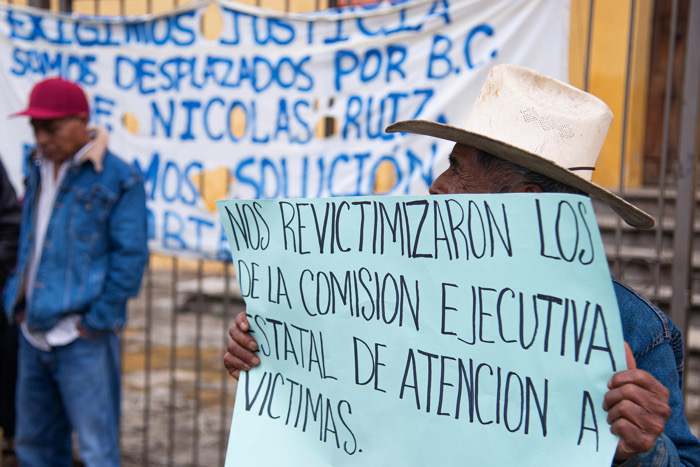 EXIGIMOS JUSTICIA
SOMOS DESPLAZADOS POR B.C.
DE NICOLAS RUIZ,
SOLUCIÓN
NOS REVICTIMIZARON LOS
DE LA COMISION EJECUTIVA
ESTATAL DE ATENCION A
VICTIMAS.